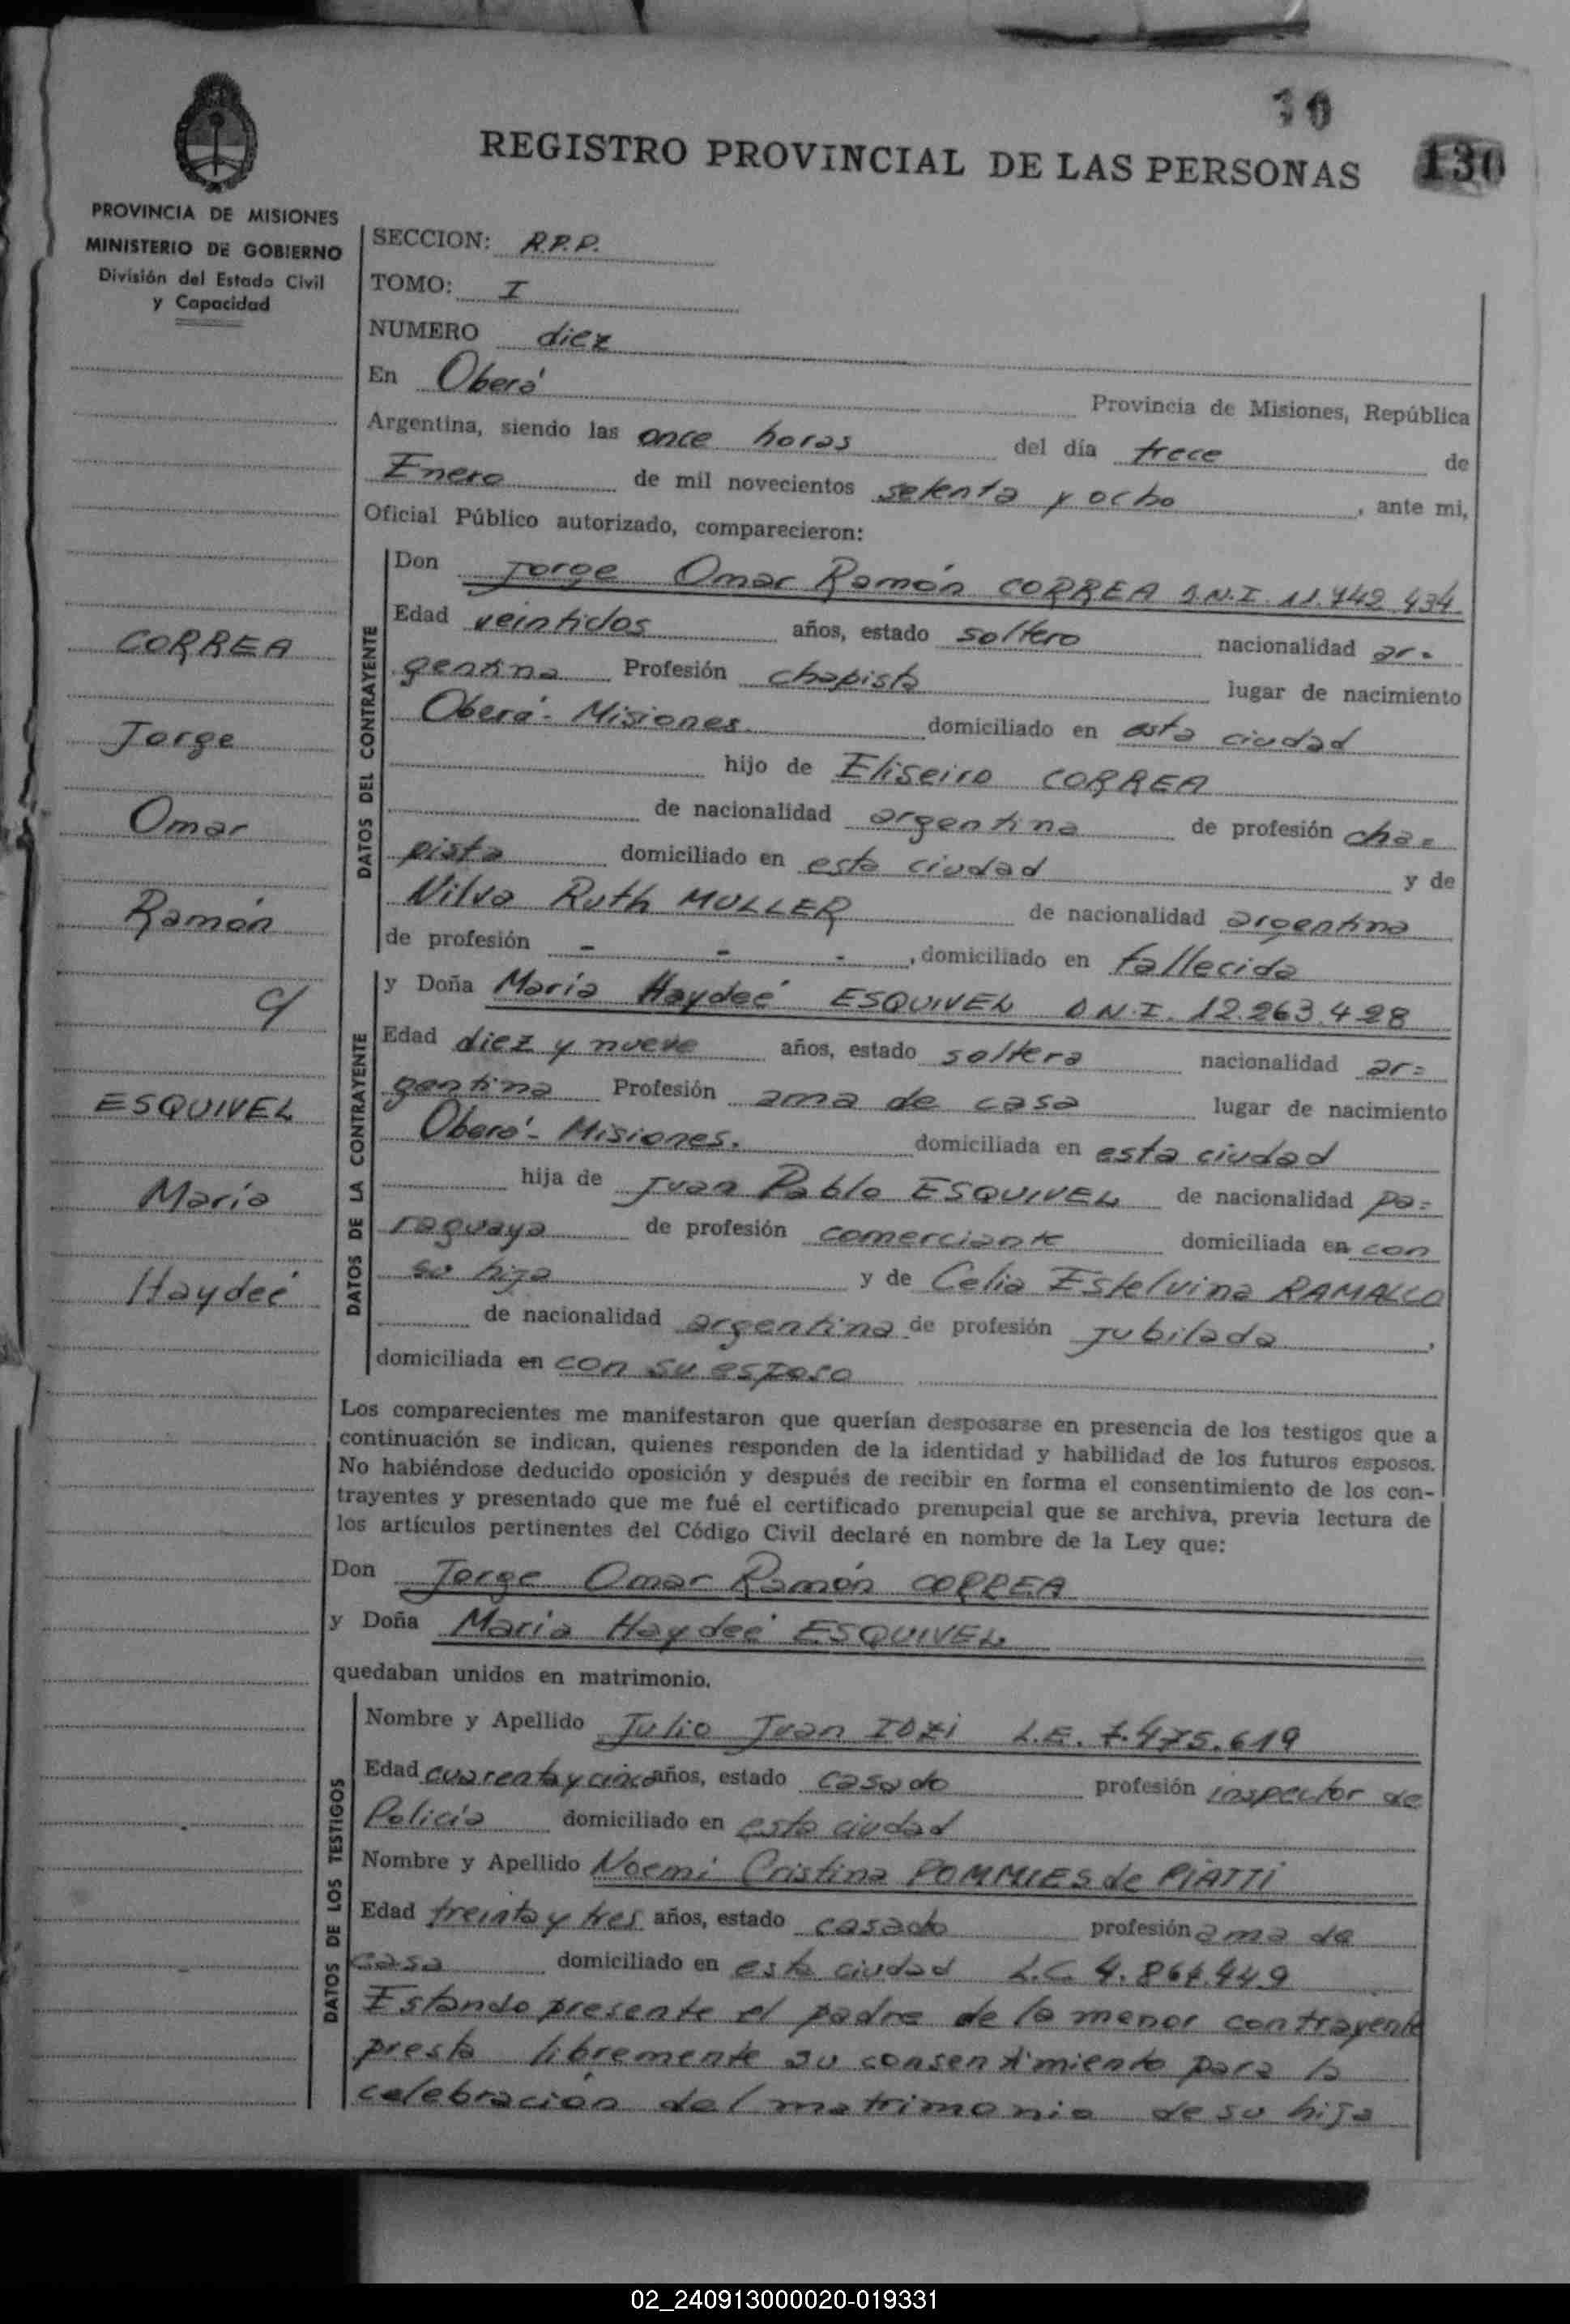 30
REGISTRO PROVINCIAL DE LAS PERSONAS 130
PROVINCIA DE MISIONES
MINISTERIO DE GOBIERNO
División del Estado Civil
y Capacidad
CORREA
Jorge
Omar
Ramón
c/
ESQUIVEL
María
Haydeé
SECCION: R.P.P.
TOMO: I
NUMERO diez
En Oberá Provincia de Misiones, República
Argentina, siendo las once horas del día trece de
Enero de mil novecientos setenta y ocho, ante mi,
Oficial Público autorizado, comparecieron:
DATOS DEL CONTRAYENTE
Don Jorge Omar Ramón CORREA D.N.I. 11.742.434
Edad veintidos años, estado soltero nacionalidad ar-
gentina Profesión chapista lugar de nacimiento
Oberá- Misiones. domiciliado en esta ciudad
hijo de Eliseiro CORREA
de nacionalidad argentina de profesión cha=
pista domiciliado en esta ciudad y de
Nilva Ruth MULLER de nacionalidad argentina
de profesión - - -, domiciliado en fallecida
DATOS DE LA CONTRAYENTE
y Doña María Haydeé ESQUIVEL D.N.I. 12.263.428
Edad diez y nueve años, estado soltera nacionalidad ar=
gentina Profesión ama de casa lugar de nacimiento
Oberá- Misiones. domiciliada en esta ciudad
hija de Juan Pablo ESQUIVEL de nacionalidad pa=
raguaya de profesión comerciante domiciliada en con
su hija y de Celia Estelvina RAMALLO
de nacionalidad argentina de profesión jubilada,
domiciliada en con su esposo
Los comparecientes me manifestaron que querían desposarse en presencia de los testigos que a
continuación se indican, quienes responden de la identidad y habilidad de los futuros esposos.
No habiéndose deducido oposición y después de recibir en forma el consentimiento de los con-
trayentes y presentado que me fué el certificado prenupcial que se archiva, previa lectura de
los artículos pertinentes del Código Civil declaré en nombre de la Ley que:
Don Jorge Omar Ramón CORREA
y Doña María Haydeé ESQUIVEL
quedaban unidos en matrimonio.
DATOS DE LOS TESTIGOS
Nombre y Apellido Julio Juan IDZI L.E. 7.475.619
Edad cuarenta y cinco años, estado casado profesión inspector de
Policía domiciliado en esta ciudad
Nombre y Apellido Noemi Cristina POMMIES de PIATTI
Edad treinta y tres años, estado casado profesión ama de
casa domiciliado en esta ciudad L.C. 4.864.449
Estando presente el padre de la menor contrayente
presta libremente su consentimiento para la
celebración del matrimonio de su hija
02_240913000020-019331